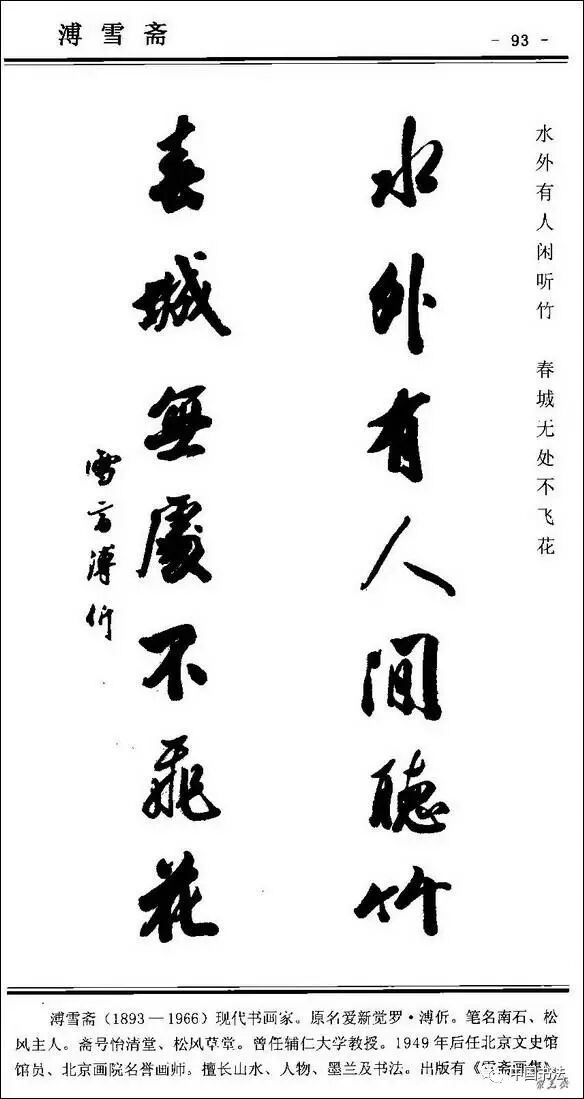 溥雪斋
- 93 -
水外有人闲听竹 春城无处不飞花
水外有人间聽竹
春城無處不飛花
雪斋溥伒
溥雪斋（1893—1966）现代书画家。原名爱新觉罗·溥伒。笔名南石、松
风主人。斋号怡清堂、松风草堂。曾任辅仁大学教授。1949年后任北京文史馆
馆员、北京画院名誉画师。擅长山水、人物、墨兰及书法。出版有《雪斋画集》
中国书法